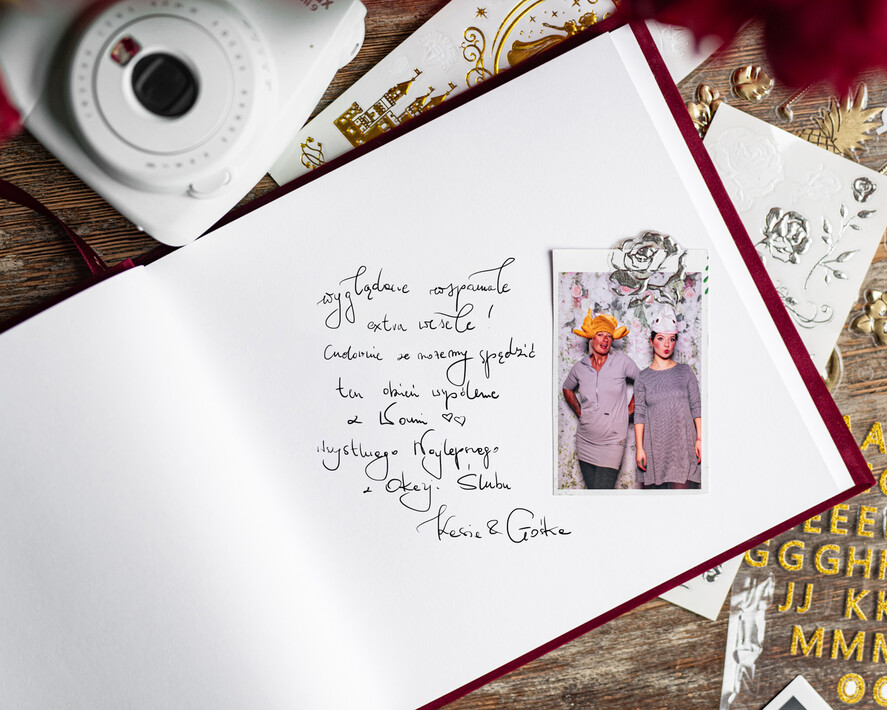 wyglądacie wspaniale
extra wesele!
Cudownie że możemy spędzić
ten dzień wspólnie
z Wami ♡♡
Wszystkiego Najlepszego
z Okazji Ślubu
Kasia & Gośka
A
EEEE
GGGGHH
JJ KK
MMM